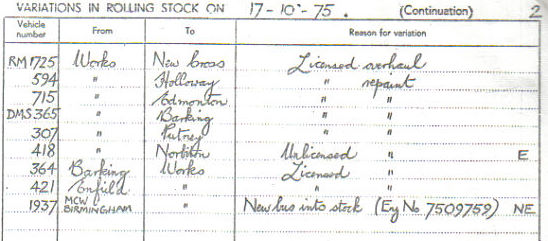 VARIATIONS IN ROLLING STOCK ON 17-10-75. (Continuation) 2
Vehicle number From To Reason for variation
RM1725 Works New Cross Licensed overhaul
594 " Holloway " repaint
715 " Edmonton " "
DMS365 " Barking " "
307 " Putney " "
418 " Norbiton Unlicensed " E
364 Barking Works Licensed "
421 Enfield " " "
1937 MCW BIRMINGHAM " New bus into stock (Eng No 7509759) NE